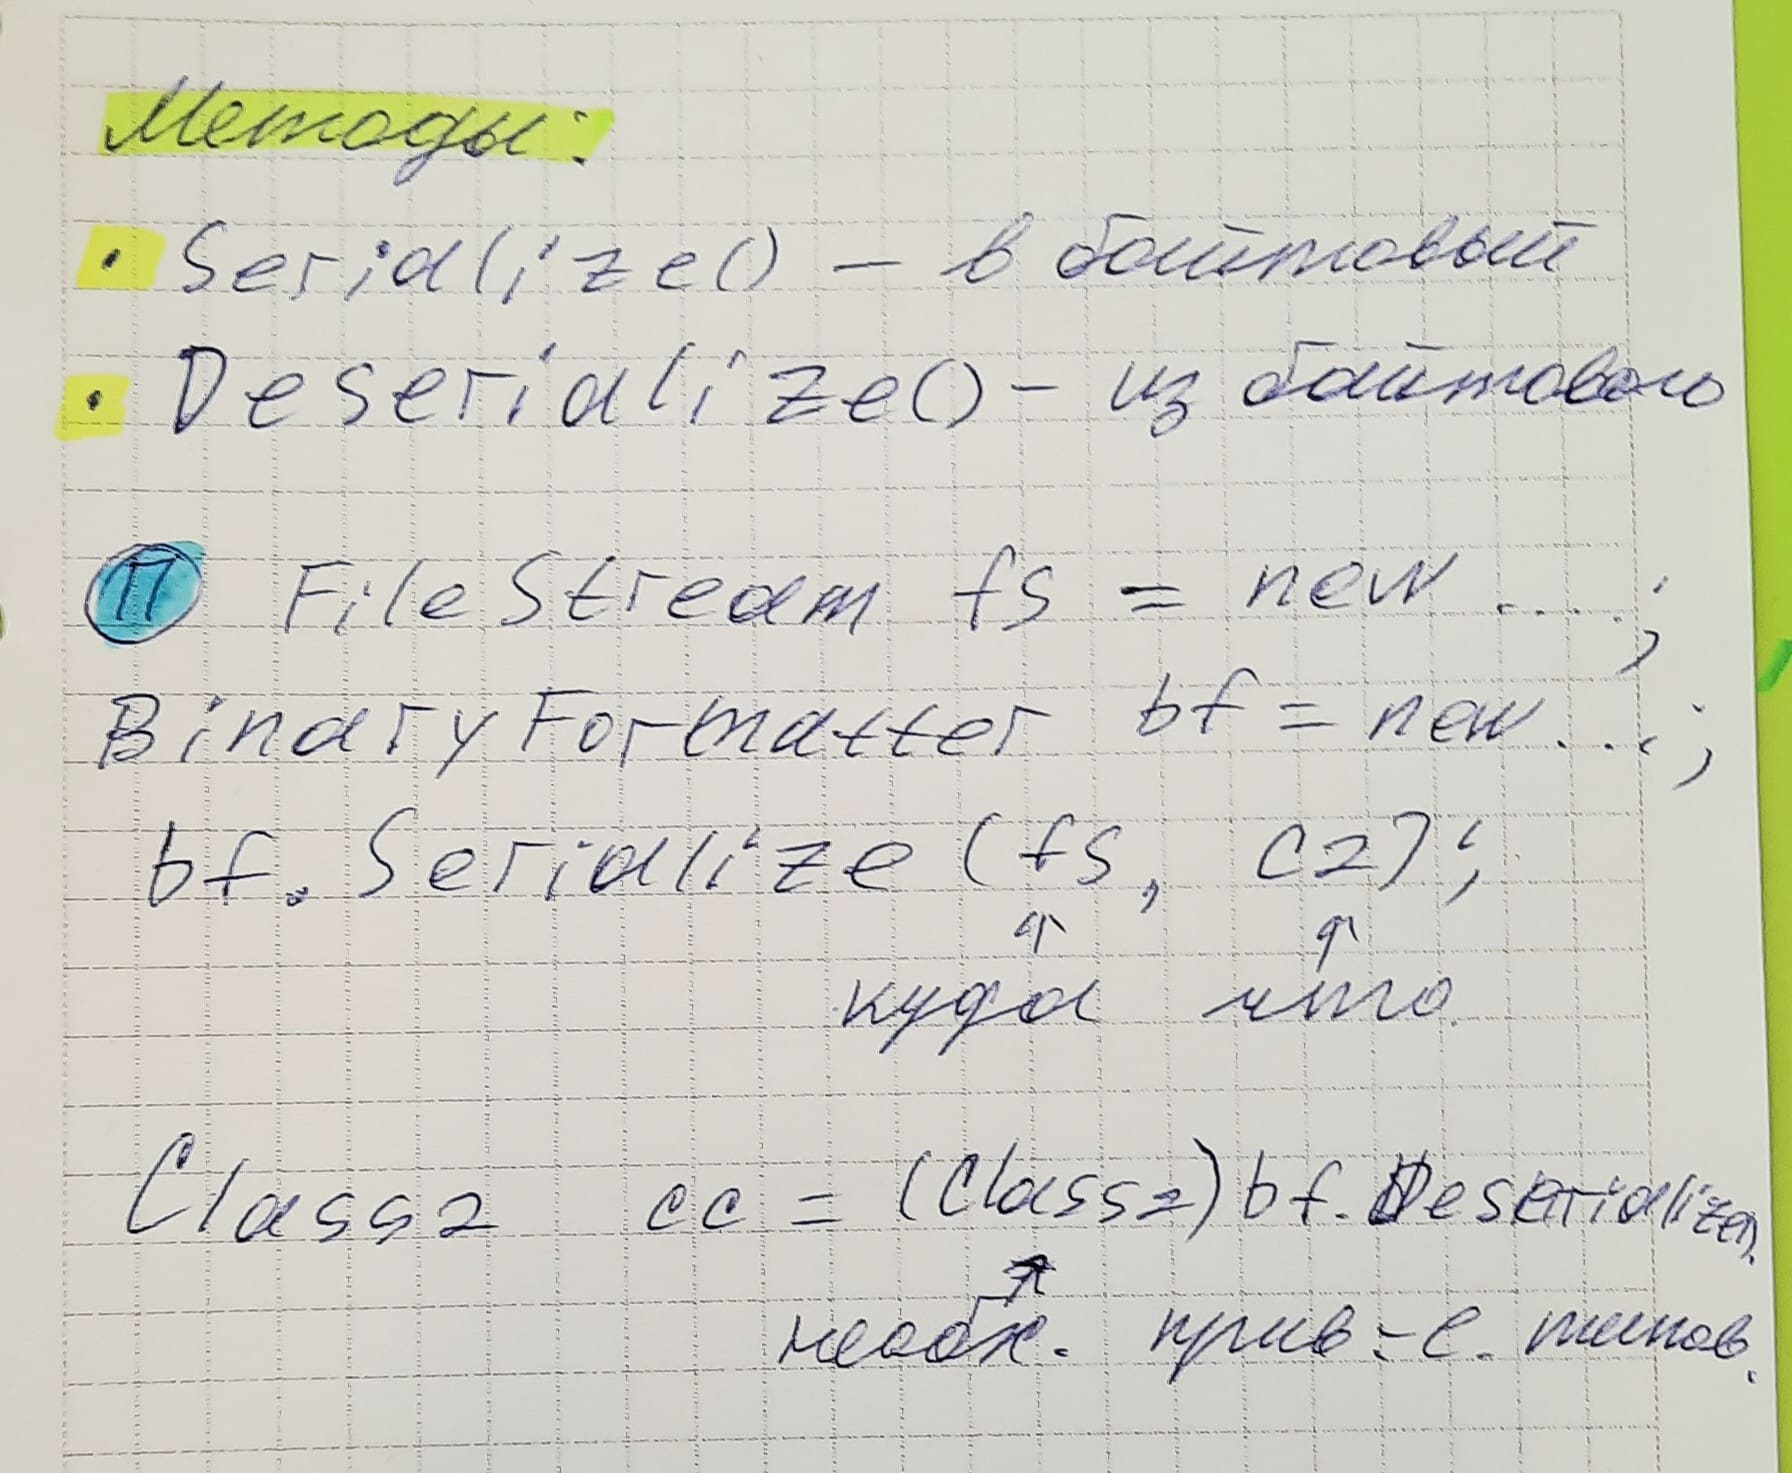 Методы:
• Serialize() - в байтовый
• Deserialize() - из байтового
П FileStream fs = new ....;
BinaryFormatter bf = new ...;
bf. Serialize (fs, c2);
↑ ↑
куда что
Class2 cc = (Class2) bf. Deserialize();
↑
необх. прив-е. типов.